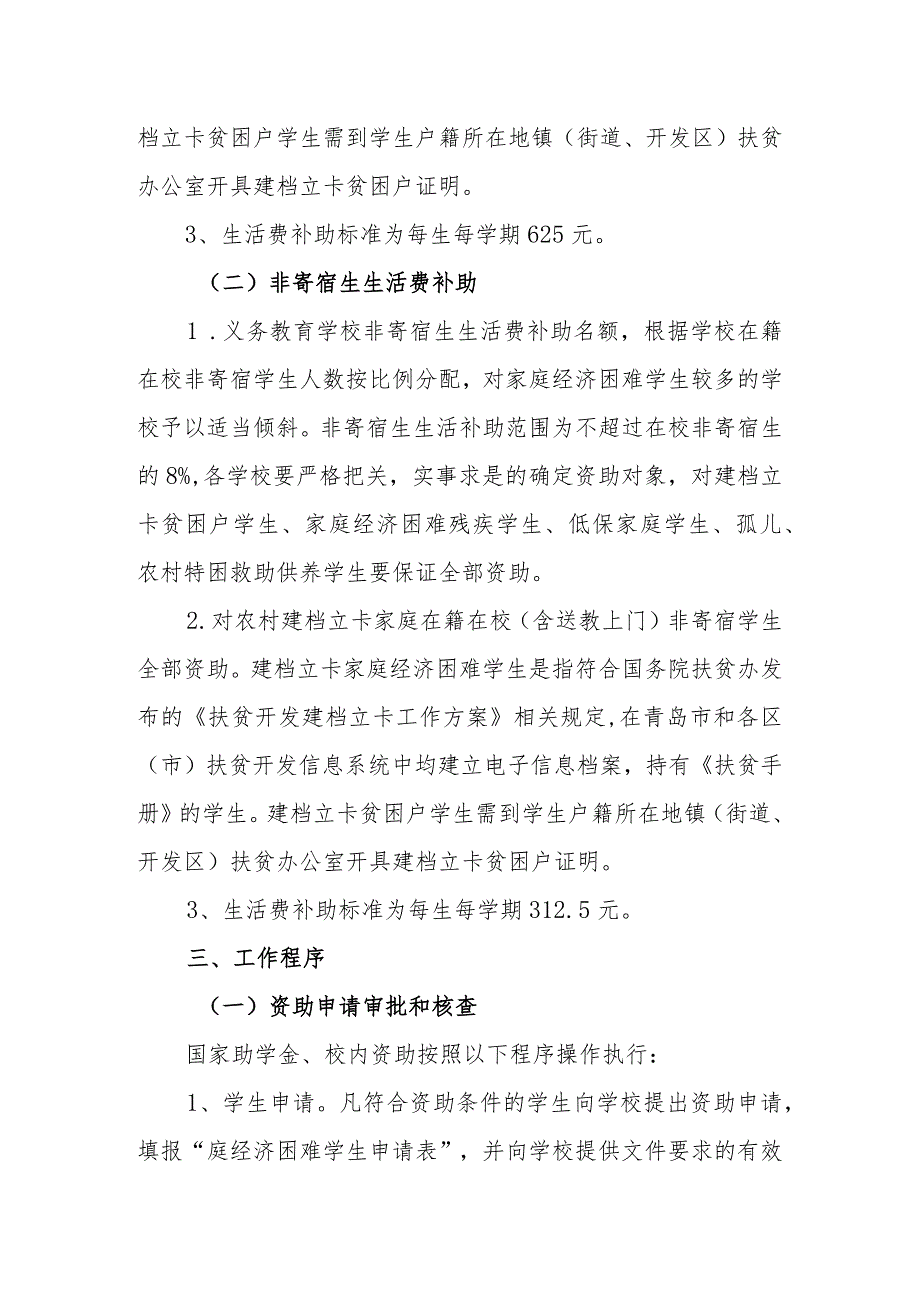 档立卡贫困户学生需到学生户籍所在地镇（街道、开发区）扶贫
办公室开具建档立卡贫困户证明。
3、生活费补助标准为每生每学期 625 元。
（二）非寄宿生生活费补助
1 .义务教育学校非寄宿生生活费补助名额，根据学校在籍
在校非寄宿学生人数按比例分配，对家庭经济困难学生较多的学
校予以适当倾斜。非寄宿生生活补助范围为不超过在校非寄宿生
的 8%,各学校要严格把关，实事求是的确定资助对象，对建档立
卡贫困户学生、家庭经济困难残疾学生、低保家庭学生、孤儿、
农村特困救助供养学生要保证全部资助。
2.对农村建档立卡家庭在籍在校（含送教上门）非寄宿学生
全部资助。建档立卡家庭经济困难学生是指符合国务院扶贫办发
布的《扶贫开发建档立卡工作方案》相关规定,在青岛市和各区
（市）扶贫开发信息系统中均建立电子信息档案，持有《扶贫手
册》的学生。建档立卡贫困户学生需到学生户籍所在地镇（街道、
开发区）扶贫办公室开具建档立卡贫困户证明。
3、生活费补助标准为每生每学期 312.5 元。
三、工作程序
（一）资助申请审批和核查
国家助学金、校内资助按照以下程序操作执行：
1、学生申请。凡符合资助条件的学生向学校提出资助申请，
填报“庭经济困难学生申请表”，并向学校提供文件要求的有效